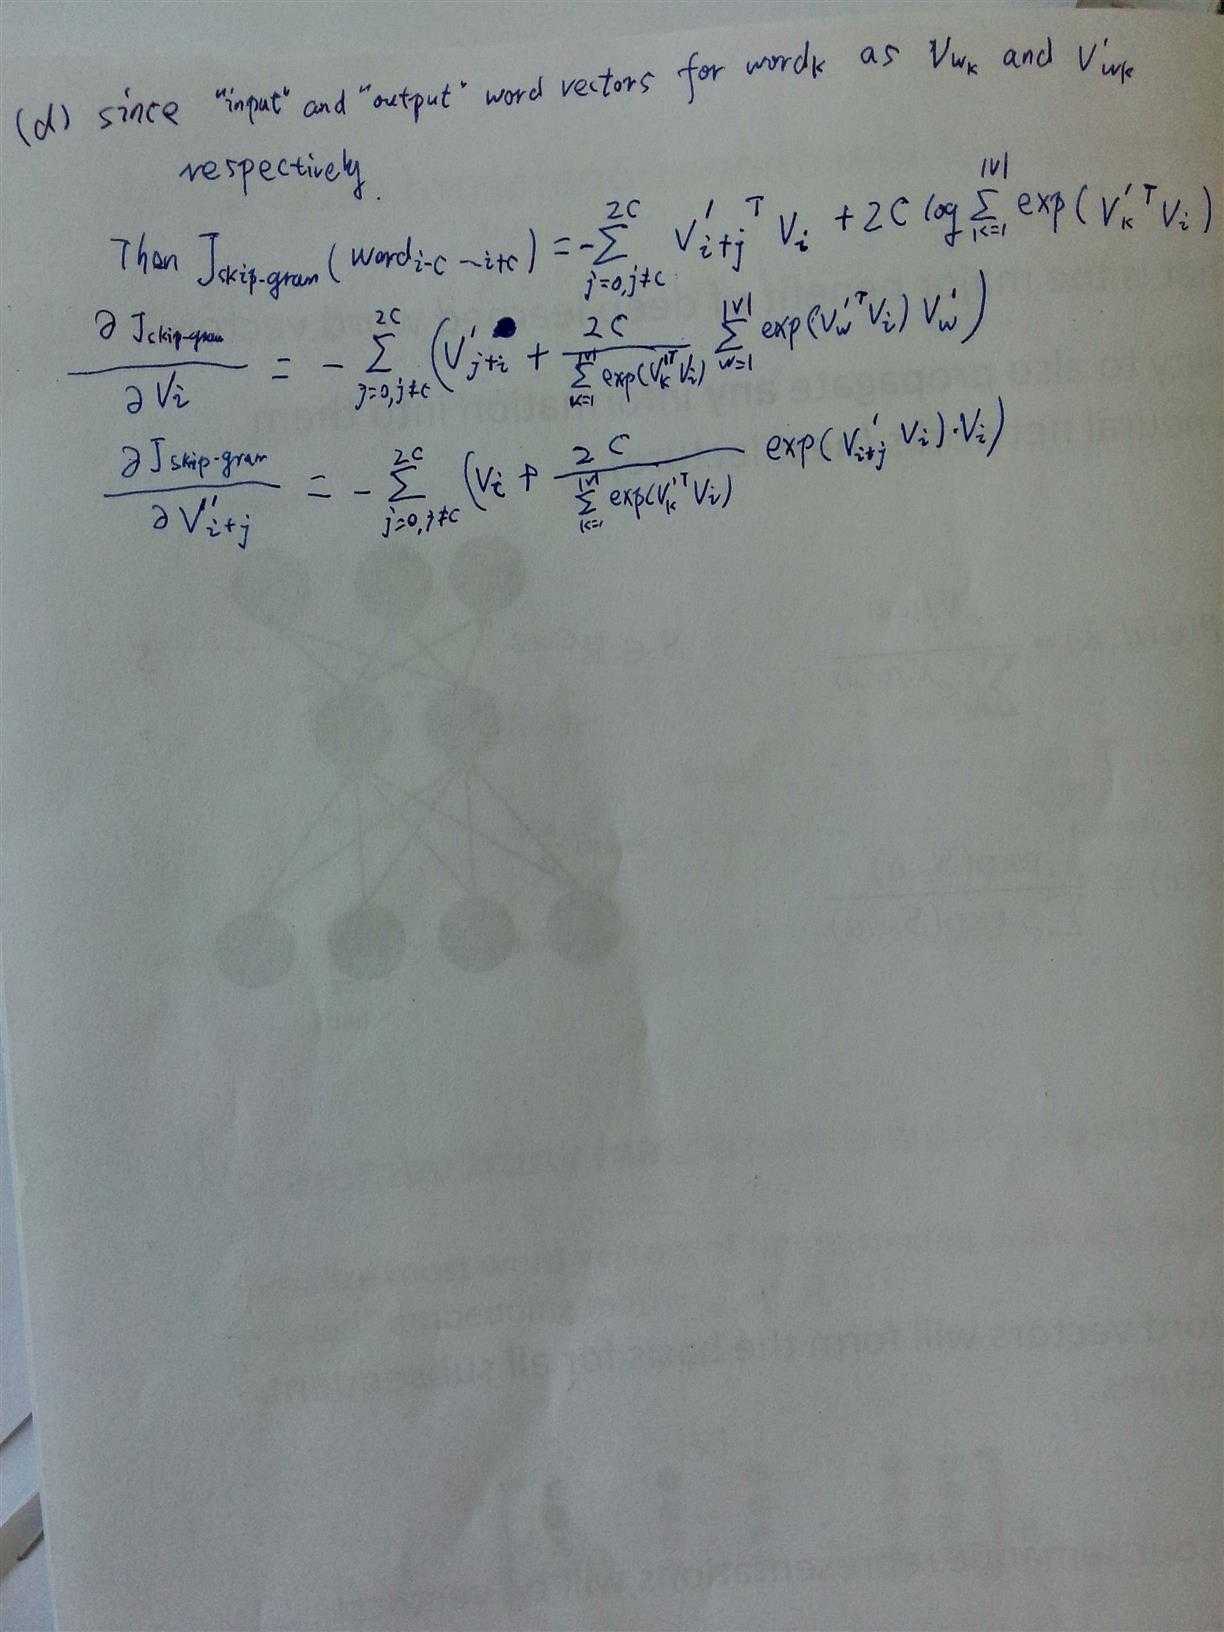 (d) since "input" and "output" word vectors for word_k as V_{w_k} and V'_{w_k}
respectively.
Then J_{skip-gram}(word_{i-C ~ i+C}) = -\sum_{j=0,j≠C}^{2C} V'_{i+j}^T V_i + 2C log \sum_{k=1}^{|V|} exp(V'_k^T V_i)
∂J_{skip-gram}/∂V_i = -\sum_{j=0,j≠C}^{2C} (V'_{j+i} + \frac{2C}{\sum_{k=1}^{|V|} exp(V'_k^T V_i)} \sum_{w=1}^{|V|} exp(V'_w^T V_i) V'_w)
∂J_{skip-gram}/∂V'_{i+j} = -\sum_{j=0,j≠C}^{2C} (V_i + \frac{2C}{\sum_{k=1}^{|V|} exp(V'_k^T V_i)} exp(V'_{i+j} V_i)·V_i)